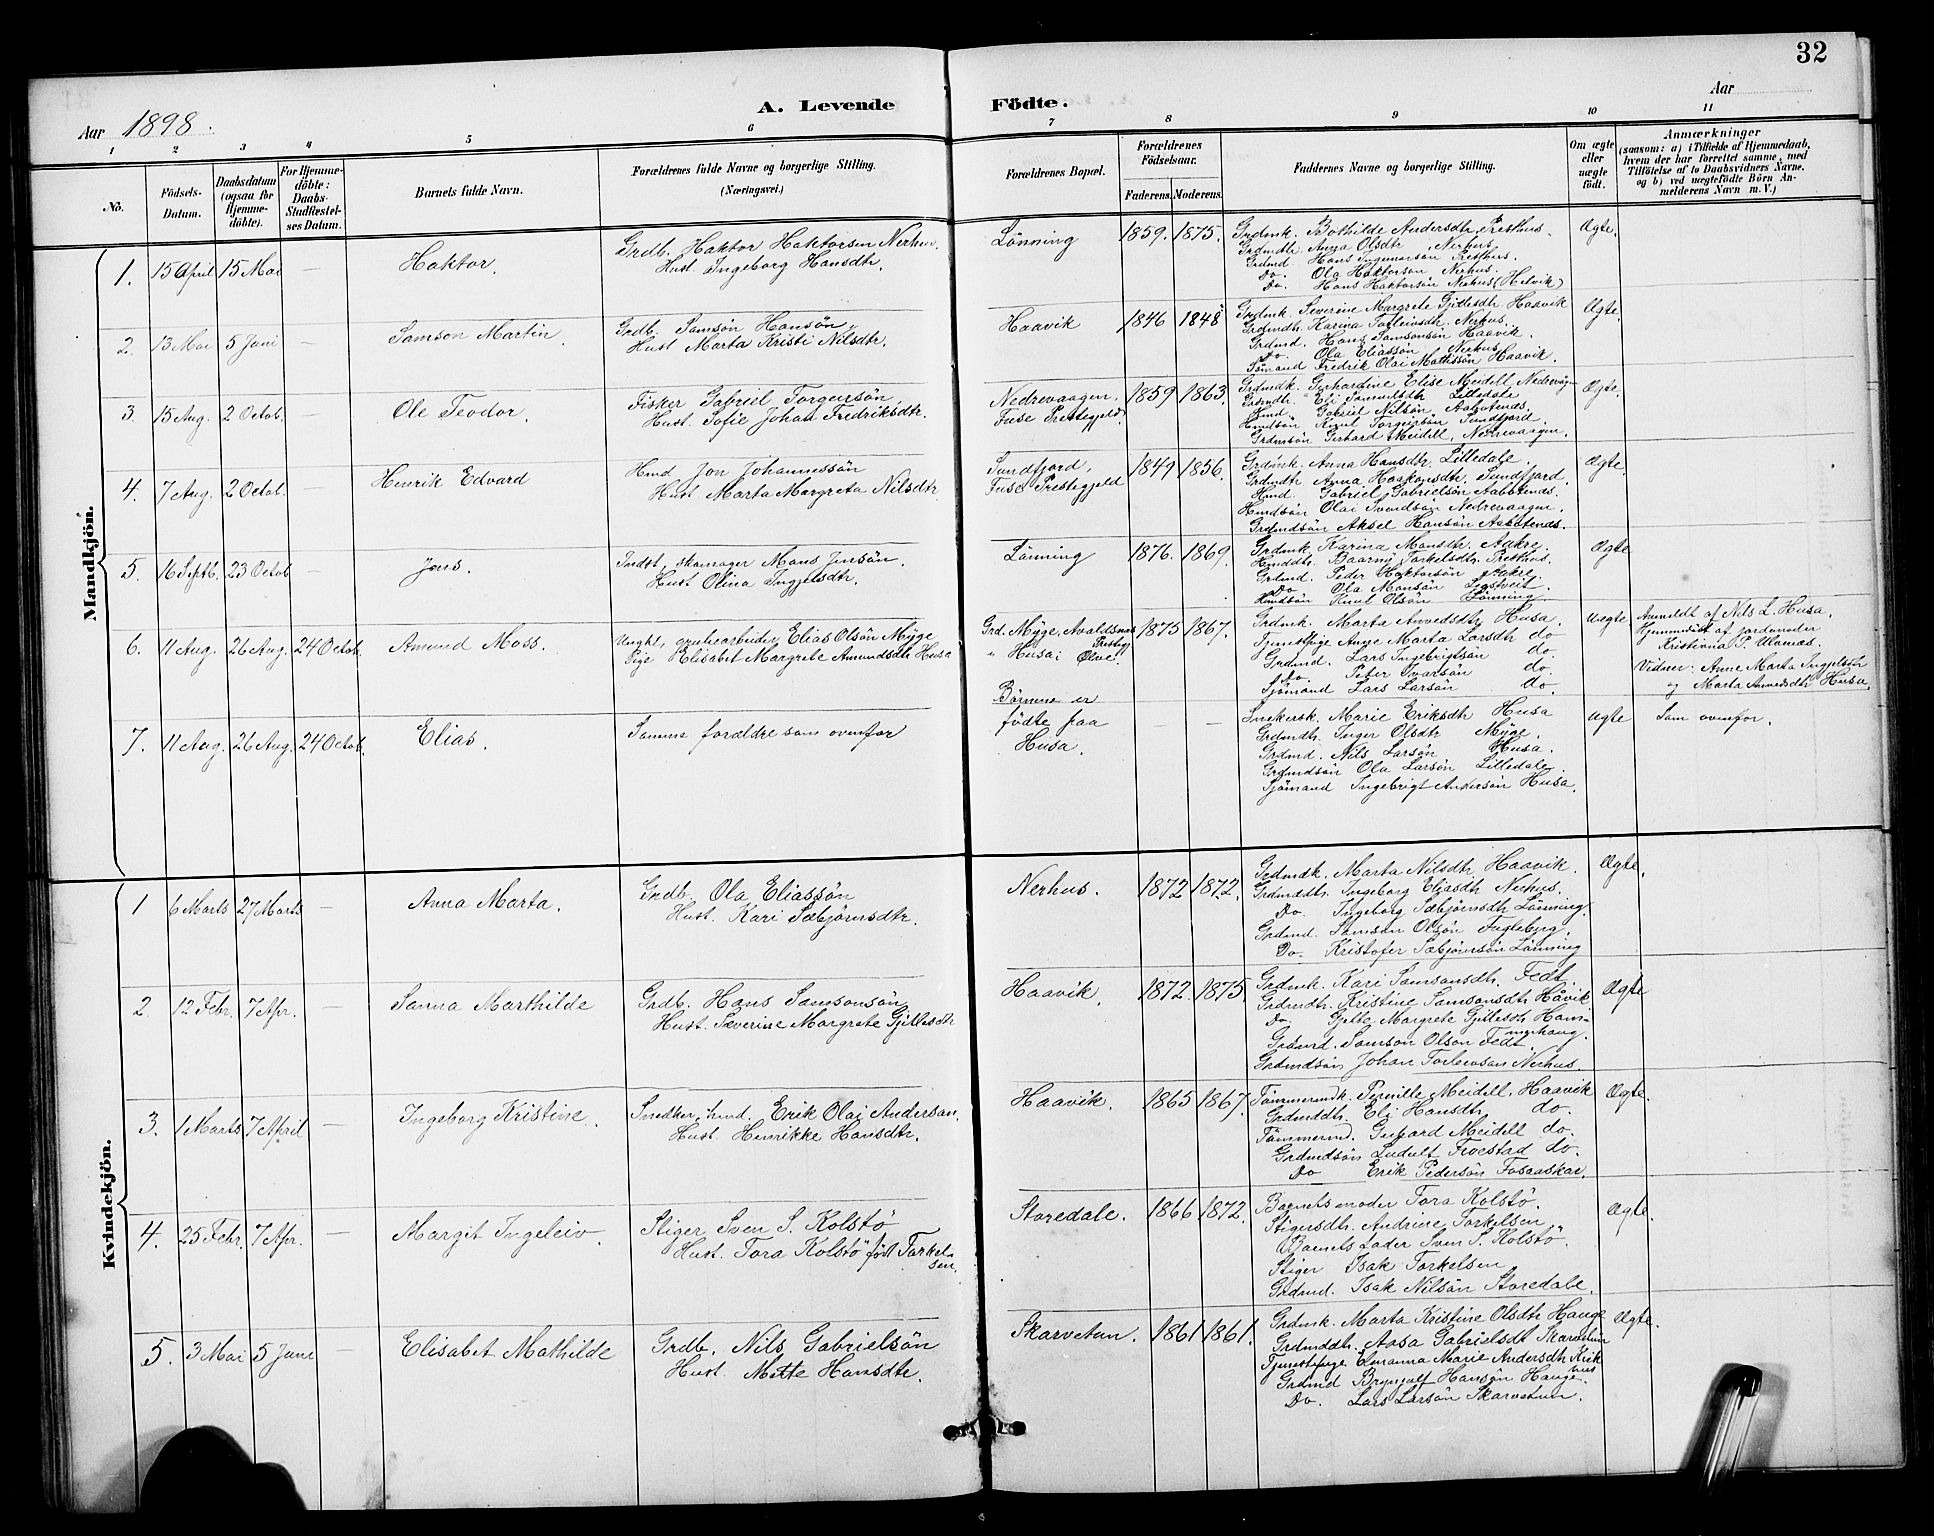 32
A. Levende Födte.
Aar 1898.
Aar
1 2 3 4 5 6 7 8 9 10 11
No.
Födsels-Datum.
Daabsdatum (ogsaa for Hjemme-döbte).
For Hjemme-döbte: Daabs-Stadfæstel-ses Datum.
Barnets fulde Navn.
Forældrenes fulde Navne og borgerlige Stilling.
(Næringsvei.)
Forældrenes Bopæl.
Forældrenes Födselsaar.
Faderens. Moderens.
Faddernes Navne og borgerlige Stilling.
Om ægte eller uægte födt.
Anmærkninger
(saasom: a) i Tilfælde af Hjemmedaab,
hvem der har forrettet samme, med
Tilföielse af to Daabsvidners Navne.
og b) ved uægtefödte Börn An-
melderens Navn m. V.)
Mandkjön.
1. 15 April 15 Mai — Haktor.
Grdb. Haktor Haktorsen Nerhus
Hust. Ingeborg Hansdtr.
Lönning 1859. 1875.
Grdmk. Bothilde Andersdtr Presthus.
Grdmdtr. Anna Olsdtr Nerhus.
Grdmd Hans Ingemarsön Presthus.
Do. Ola Haktorsön Nerhus.
Do. Hans Haktorsön Nerhus (Helvik)
Ægte.
2. 13 Mai 5 Juni — Samson Martin
Grdb. Samsön Hansön
Hust Marta Kristi Nilsdtr.
Haavik 1846 1848
Grdmk. Severine Margrete Gjillesdtr Haavik
Grdmdtr. Karina Torleivsdtr. Nerhus.
Grdmd. Hans Samsonsön Haavik.
Do. Ola Eliassön Nerhus.
Sömand Fredrik Olai Mathissön Haavik.
Ægte.
3. 15 Aug. 2 Octob. — Ole Teodor.
Fisker Gabriel Torgersön
Hust. Sofie Johan Fredriksdtr.
Nedrevaagen.
Fuse Prestegjeld
1859 1863.
Grdmdk. Gerhardine Elise Meidell Nedrevåg
Grdmdtr. Eli Samuelsdtr Lilledale
Hmd. Gabriel Nilsön Aabotenæs.
Hmdsön Knut Torgersön Sundfjord
Grdmsön Gerhard Meidell, Nedrevaagen.
Ægte
4. 7 Aug. 2 Octob. — Henrik Edvard
Hmd Jon Johannessön
Hust Marta Margreta Nilsdtr.
Sundfjord,
Fuse Prestegjeld
1849 1856.
Grdmk. Anna Hansdtr. Lilledale.
Grdmdtr Anna Haakonsdtr. Sundfjord.
Hmd Gabriel Gabrielsön Aabotenæs.
Hmdsön Olai Svendsön Nedrevaagen.
Grdmdsön Aksel Hansön Aabotenæs.
Ægte
5. 16 Septb. 23 Octob — Jens.
Indst, skomager Mons Jensön.
Hust Olina Ingjelsdtr.
Lönning 1876. 1869.
Grdmk Karina Monsdtr. Aakre
Hmddtr. Baarni Torkelsdtr. Presthus.
Grdmd. Peder Haktorsön Aakre.
Do Ola Monsön Ligstveit
Hmdsön Knut Olsön Lönning.
Ægte
6. 11 Aug. 26 Aug. 24 Octob. Amund Moss.
Ungkl, grubearbeider Elias Olsön Myge
Pige Elisabet Margrete Amundsdtr Husa
Grd. Myge, Avaldsnæs Prestegj.
" Husa i Ølve.
1875 1867.
Grdmk. Marta Anvedsdtr Husa.
Tjenestpige Ane Marta Larsdtr do
Grdmd. Lars Ingebrigtsön do.
Do. Peter Ivarsön do.
Sjömand Lars Larsön do.
Uegte
Anmeldt af Nils L. Husa.
Hjemmedöbt af jordmoder
Kristiana P. Ulvenæs.
Vidner: Anne Marta Ingjelsdtr
og Marta Anvedsdtr Husa.
7. 11 Aug. 26 Aug. 24 Octob. Elias.
Samme forældre som ovenfor
Börnene er
födte paa
Husa.
—
Snekersk. Marie Eriksdtr Husa
Grdmdtr. Inger Olsdtr Myge.
Grdmd. Nils Larsön Husa.
Grdmdsön Ola Larsön Lilledale.
Sjömand Ingebrigt Andersön Husa.
uegte
Som ovenfor.
Kvindekjön.
1 6 Marts 27 Marts — Anna Marta.
Grdb. Ola Eliassön
Hust. Kari Sæbjörnsdtr.
Nerhus. 1872 1872.
Grdmdk. Marta Nilsdtr Haavik.
Grdmdtr. Ingeborg Eliasdtr Nerhus.
Do. Ingeborg Sæbjörnsdtr Lönning.
Grdmd. Samson Olsön Fugleberg.
Do. Kristofer Sæbjörnsön Lönning
Ægte.
2. 12 Febr. 7 Apr. — Sanna Marthilde
Grdb. Hans Samsonsön
Hust. Severine Margrete Gjillesdtr
Haavik. 1872. 1875.
Grdmk. Kari Samsonsdtr. Fedt
Grdmdtr. Kristine Samsonsdtr Håvik
Do. Gjetta Margrete Gjillesdtr Ham-
merhaug.
Grdmd. Samson Olson Fedt.
Grdmdsön Johan Torleivson Nerhus.
Ægte
3. 1 Marts 7 April — Ingeborg Kristine.
Snedker, hmd. Erik Olai Anderson.
Hust. Henrikke Hansdtr.
Haavik. 1865 1867.
Tömmermdk. Pernille Meidell, Haavik
Grdmddtr. Eli Hansdtr do.
Tömmermd. Gerhard Meidell do.
Grdmdsön Ludult Froestad do.
Do Erik Pedersön Fosaaskar.
Ægte.
4. 25 Febr. 7 Apr. — Margit Ingeleiv.
Stiger Sven S. Kolstö
Hust. Tora Kolstö född Torkel-
sen.
Storedale. 1866 1872.
Barnets moder Tora Kolstö.
Stigersdtr. Andrine Torkelsen
Barnets fader Sven S. Kolstö.
Stiger Isak Torkelsen
Grdmd. Isak Nilsön Storedale.
Ægte.
5. 3 Mai 5 Juni — Elisabet Mathilde
Grdb. Nils Gabrielsön
Hust. Mette Hansdtr.
Skarvetun. 1861 1861.
Grdmk. Marta Kristine Olsdtr Hauge
Grdmddtr. Aasa Gabrielsdt Skarvetun
Tjenestepige Susanna Marie Andersdtr Krik
hus
Grdmd Brynjulf Hansön Hauge.
Do. Lars Larsön Skarvetun.
Ægte.